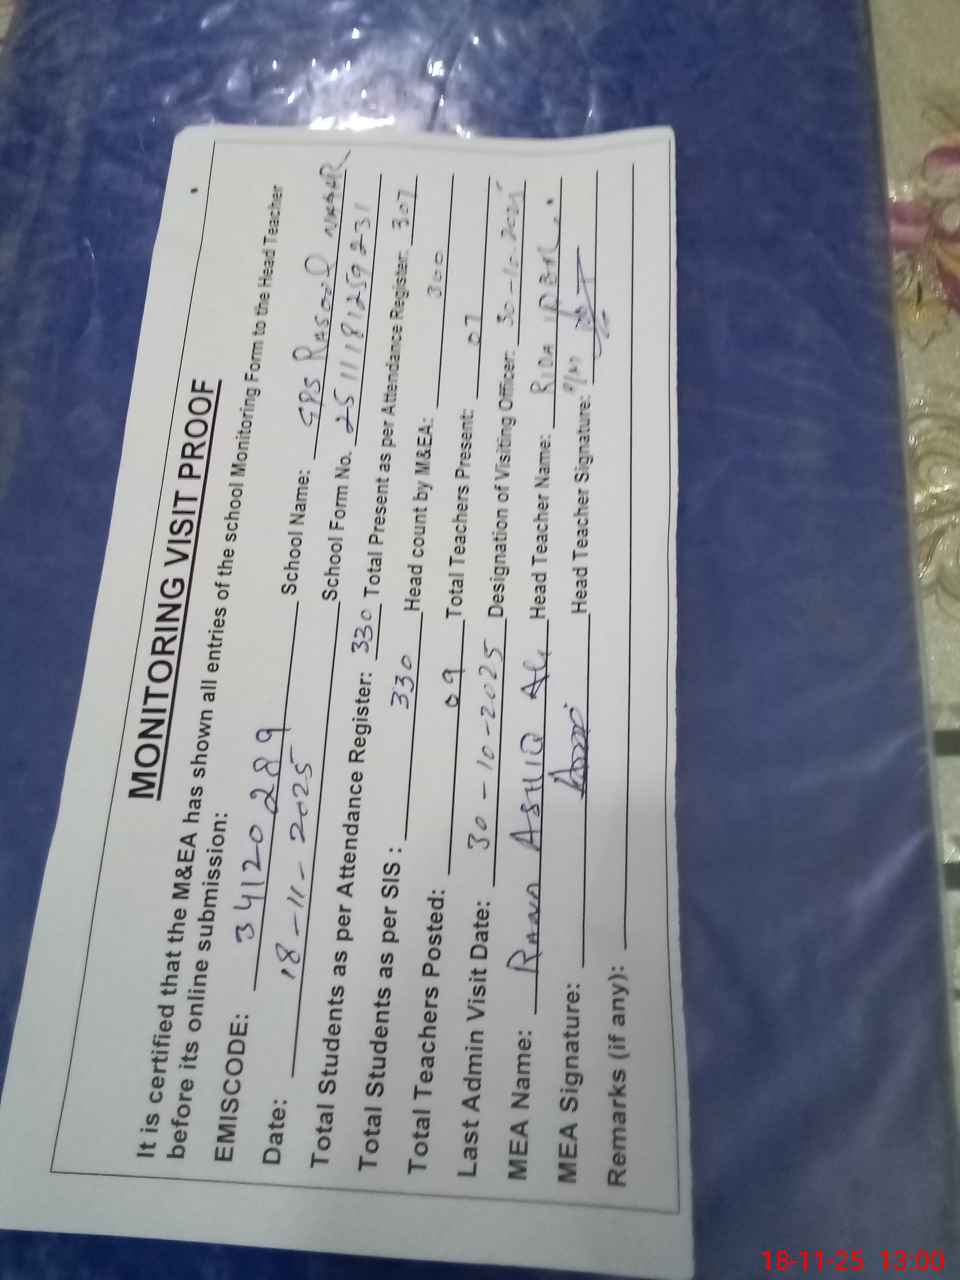 MONITORING VISIT PROOF
It is certified that the M&EA has shown all entries of the school Monitoring Form to the Head Teacher
before its online submission:
EMISCODE: 34120289 School Name: GPS RASOOL NAGAR
Date: 18-11-2025 School Form No. 2511181259231
Total Students as per Attendance Register: 330 Total Present as per Attendance Register: 307
Total Students as per SIS : 330 Head count by M&EA: 300
Total Teachers Posted: 09 Total Teachers Present: 07
Last Admin Visit Date: 30-10-2025 Designation of Visiting Officer: 30-10-2025
MEA Name: RANA ASHIQ Ali Head Teacher Name: RIDA
MEA Signature: Head Teacher Signature:
Remarks (if any):
18-11-25 13:00